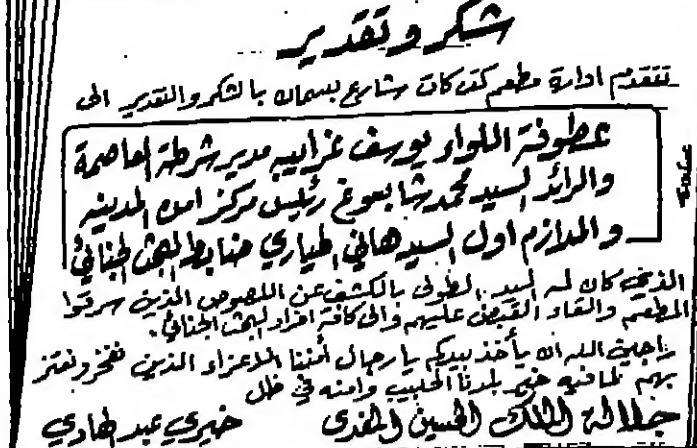 شكر وتقدير
تتقدم ادارة مطعم كت كات شارع بسمان بالشكر والتقدير الى
عطوفة اللواء يوسف غرايبه مدير شرطة العاصمة
والرائد السيد محمد شابسوغ رئيس مركز امن المدينه
والملازم اول السيد هاني الطياري ضابط البحث الجنائي
الذين كان لهم اليد الطولى بالكشف عن اللصوص الذين سرقوا
المطعم والقاء القبض عليهم والى كافة افراد البحث الجنائي.
راجين الله ان يأخذ بيدكم يا رجال أمننا الاعزاء الذين نفخر ونعتز
بهم لما فيه خير بلدنا الحبيب وامنه في ظل
جلالة الملك الحسين المفدى
خيري عبد الهادي